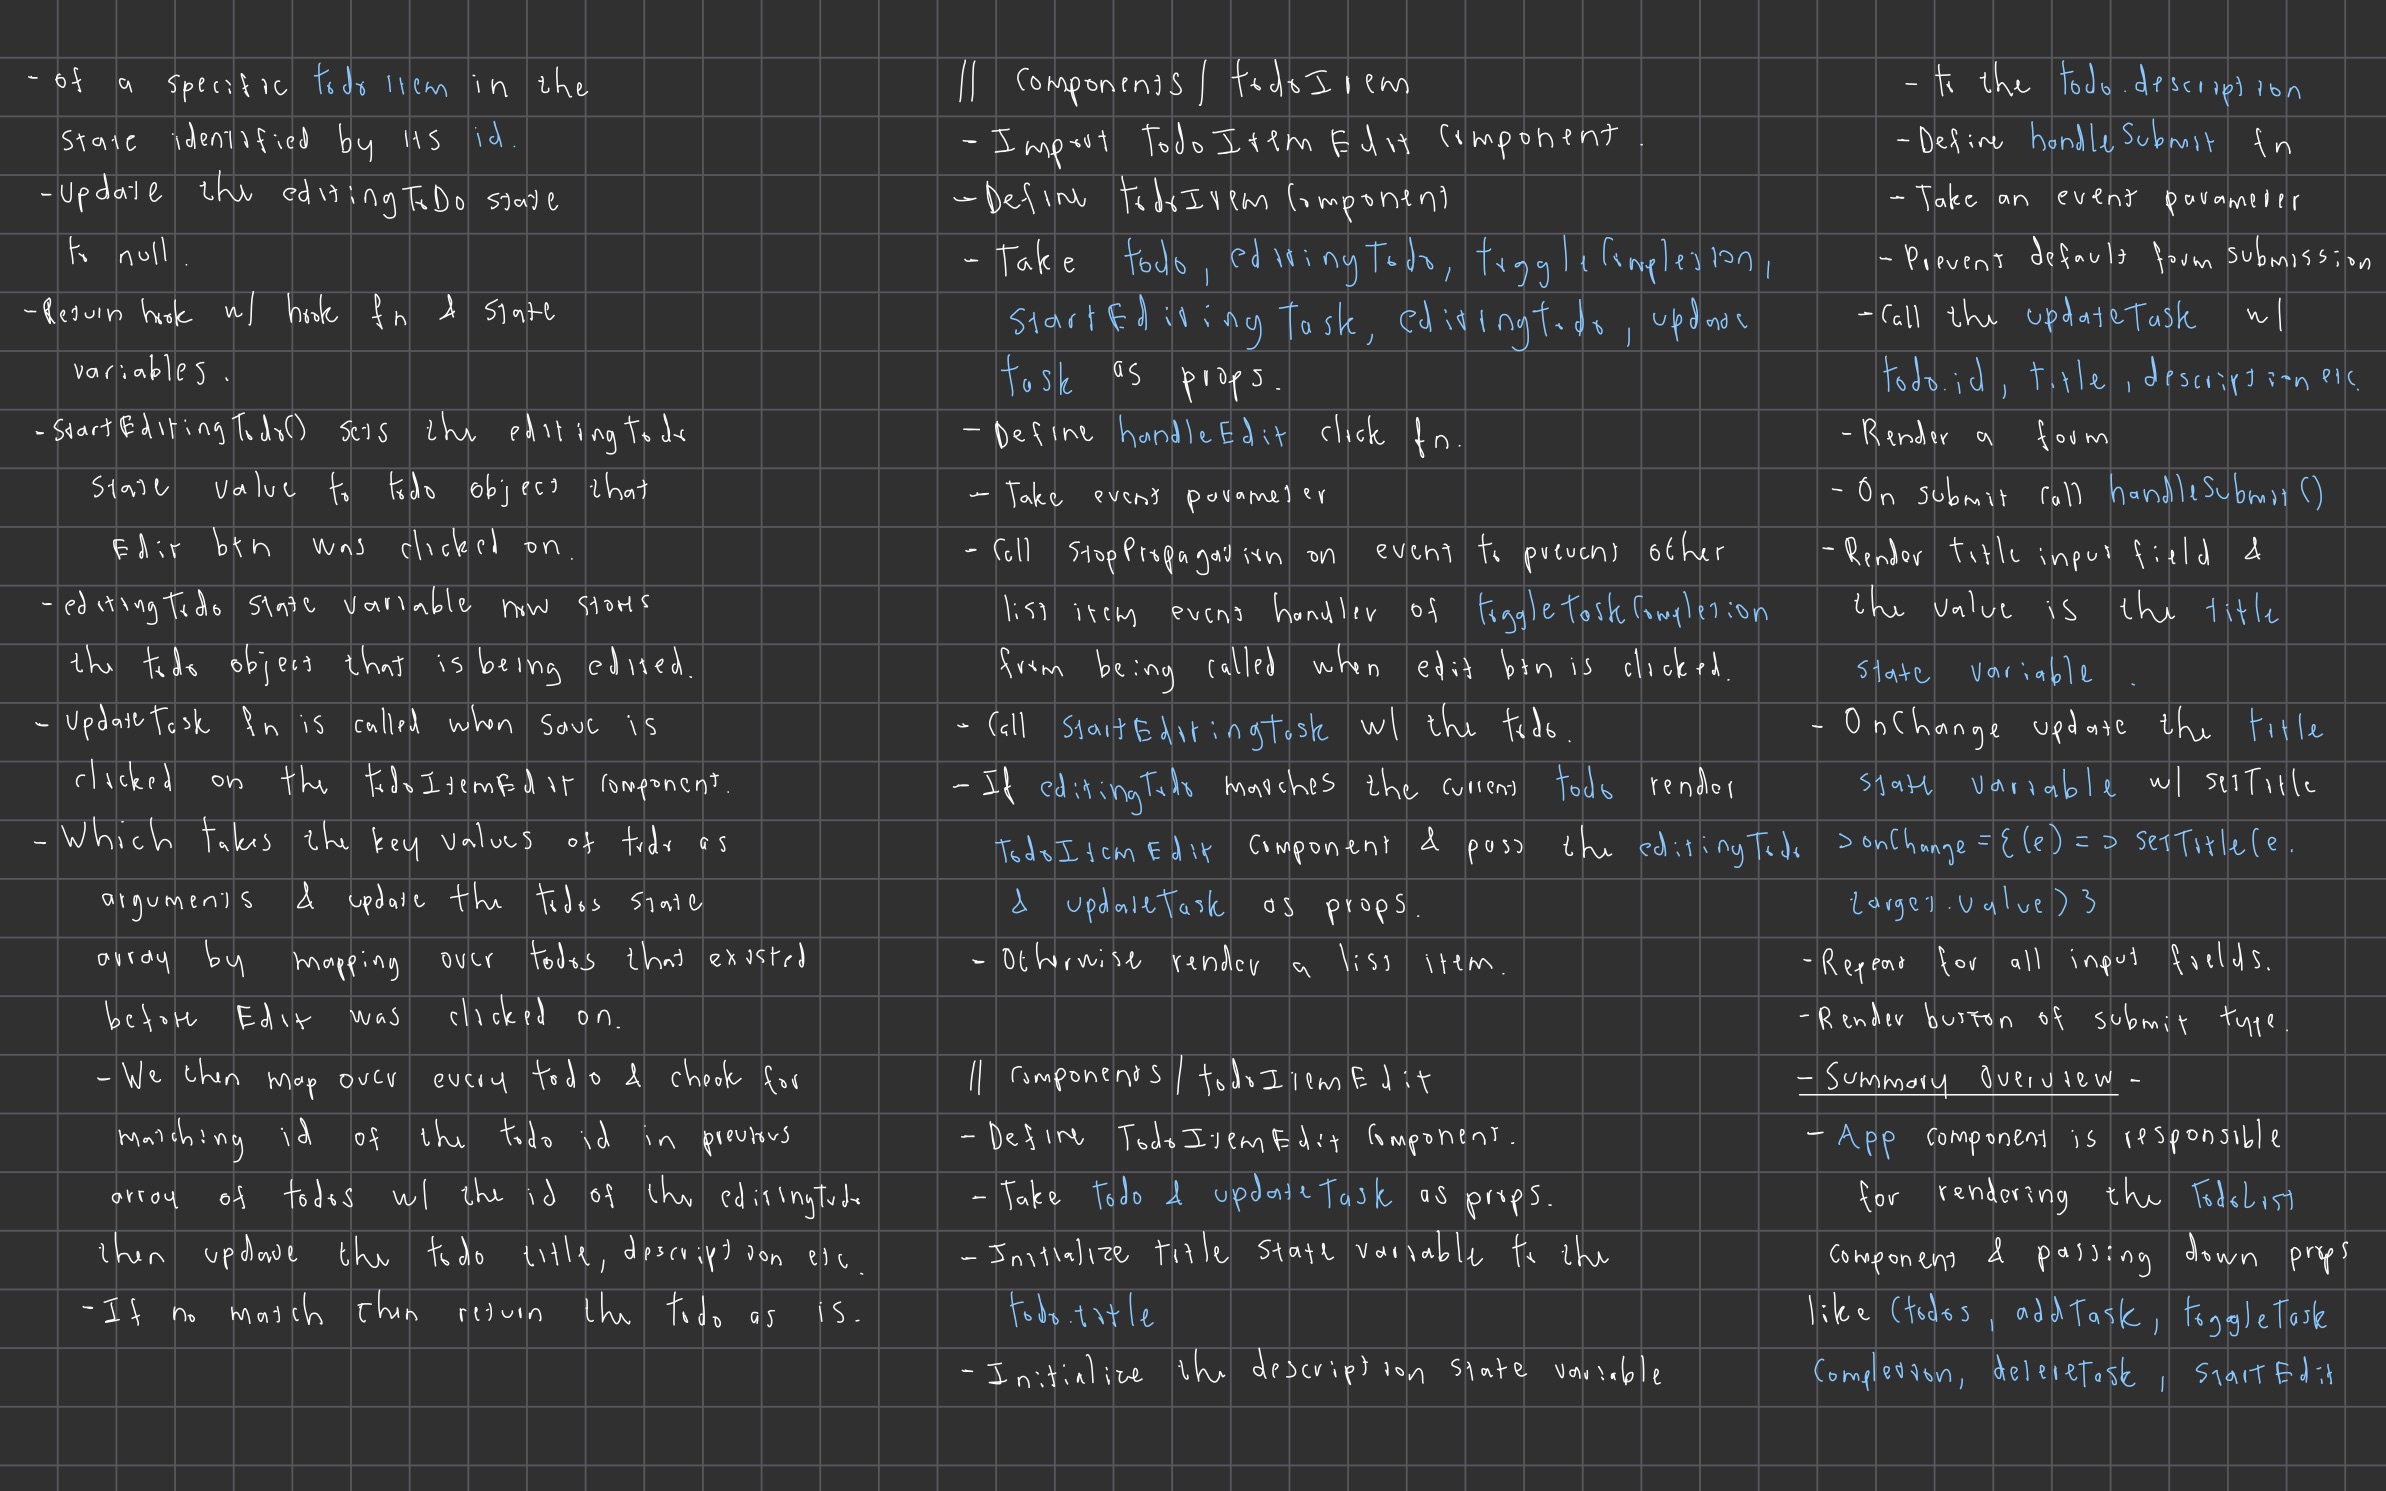 - of a specific todo item in the
state identified by its id.
- Update the editingToDo state
to null.
- Return hook w/ hook fn & state
variables.
- StartEditingTodo() sets the editingTodo
state value to todo object that
Edit btn was clicked on.
- editingTodo state variable now stores
the todo object that is being edited.
- updateTask fn is called when save is
clicked on the todoItemEdit component.
- Which takes the key values of todo as
arguments & update the todos state
array by mapping over todos that existed
before Edit was clicked on.
- We then map over every todo & check for
matching id of the todo id in previous
array of todos w/ the id of the editingTodo
then update the todo title, description etc.
- If no match then return the todo as is.
// components/todoItem
- Import TodoItemEdit component.
- Define todoItem component
- Take todo, editingTodo, toggleCompletion,
startEditingTask, editingTodo, update
task as props.
- Define handleEdit click fn.
- Take event parameter
- Call stopPropagation on event to prevent other
list item event handler of toggleTaskCompletion
from being called when edit btn is clicked.
- Call startEditingTask w/ the todo.
- If editingTodo matches the current todo render
TodoItemEdit component & pass the editingTodo
& updateTask as props.
- Otherwise render a list item.
// components/todoItemEdit
- Define TodoItemEdit component.
- Take todo & updateTask as props.
- Initialize title state variable to the
todo.title
- Initialize the description state variable
- to the todo.description
- Define handleSubmit fn
- Take an event parameter
- Prevent default form submission
- Call the updateTask w/
todo.id, title, description etc.
- Render a form
- On submit call handleSubmit()
- Render title input field &
the value is the title
state variable.
- OnChange update the title
state variable w/ setTitle
> onChange={(e) => setTitle(e.
target.value)}
- Repeat for all input fields.
- Render button of submit type.
- Summary Overview -
- App component is responsible
for rendering the TodoList
component & passing down props
like (todos, addTask, toggleTask
Completion, deleteTask, startEdit